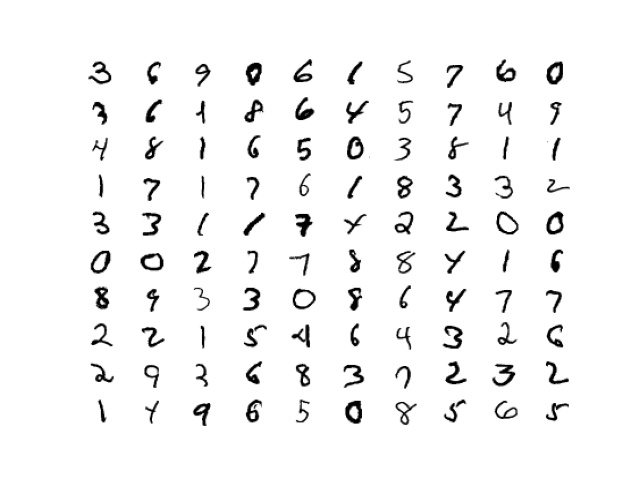 3 6 9 0 6 1 5 7 6 0
3 6 1 8 6 4 5 7 4 9
4 8 1 6 5 0 3 8 1 1
1 7 1 7 6 1 8 3 3 2
3 3 1 1 7 4 2 2 0 0
0 0 2 7 7 8 8 4 1 6
8 9 3 3 0 8 6 4 7 7
2 2 1 5 4 6 4 3 2 6
2 9 3 6 8 3 7 2 3 2
1 4 9 6 5 0 8 5 6 5